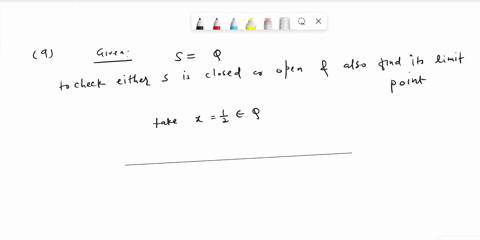 (9) Given: S = Q
to check either S is closed or open & also find its limit
point
take x = 1/2 ∈ Q